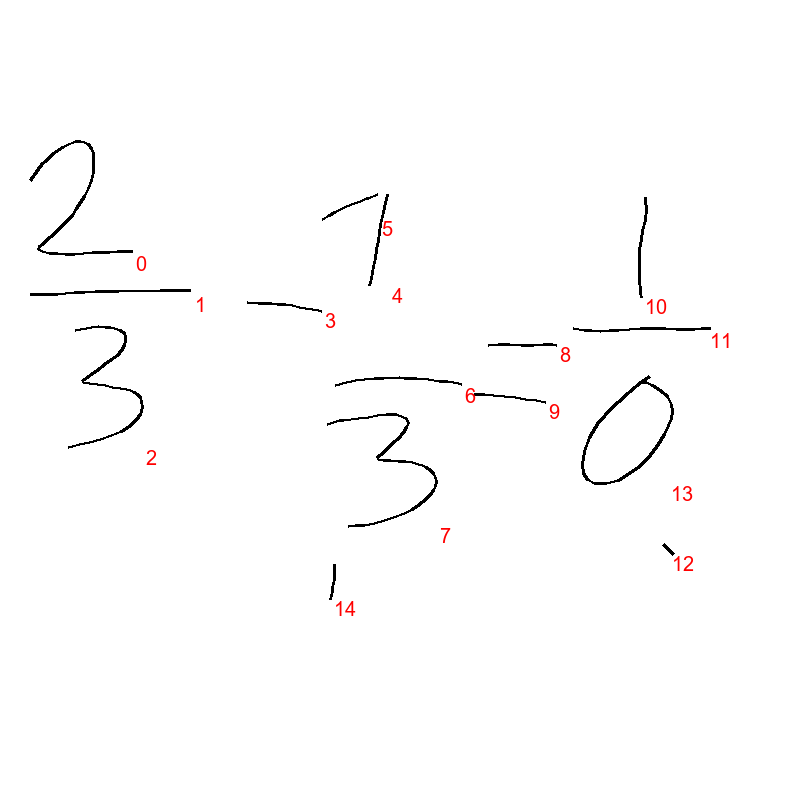 2/3 - 1/3 = 1/0
0
1
2
3
4
5
6
7
8
9
10
11
12
13
14